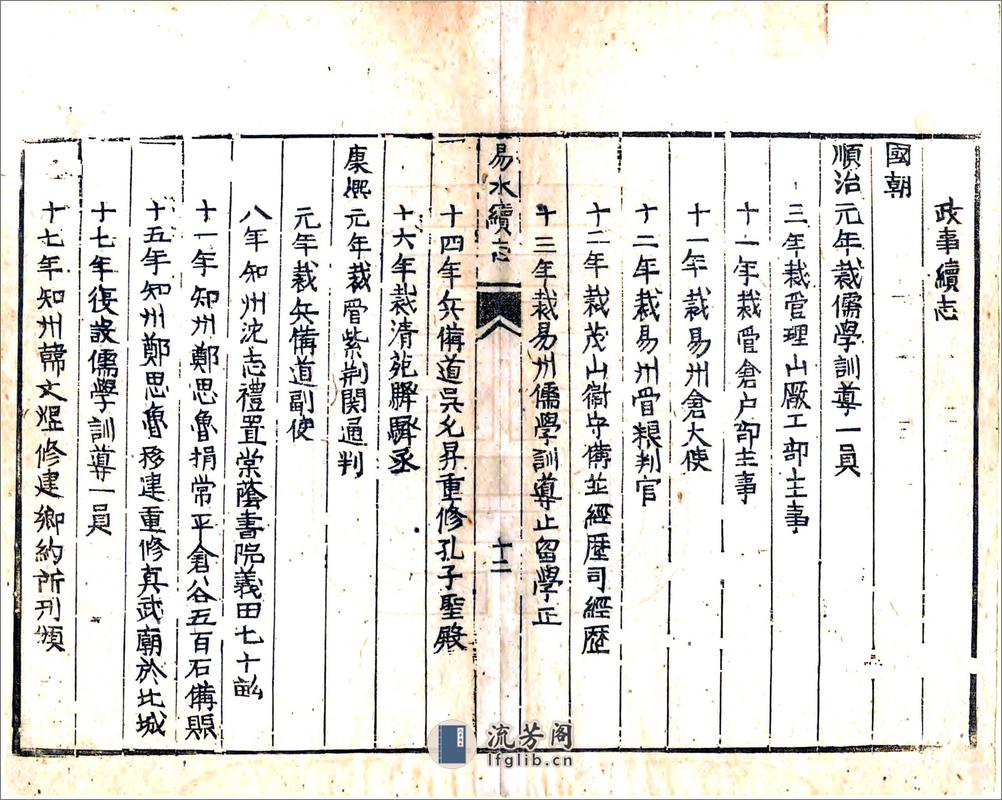 政事續志
國朝
順治元年裁儒學訓導一員
三年裁管理山厰工部主事
十一年裁管倉户部主事
十一年裁易州倉大使
十二年裁易州管粮判官
十二年裁茂山衛守備並經歷司經歷
十三年裁易州儒學訓導止留學正
易水續志
十二
十四年兵備道吳允昇重修孔子聖殿
十六年裁清苑驛驛丞
康熙元年裁管紫荆関通判
元年裁兵備道副使
八年知州沈志禮置棠蔭書院義田七十畝
十一年知州鄭思魯捐常平倉谷五百石備賑
十五年知州鄭思魯移建重修真武廟於北城
十七年復設儒學訓導一員
十七年知州韓文煜修建鄉約所刊頒
流芳阁
lfglib.cn